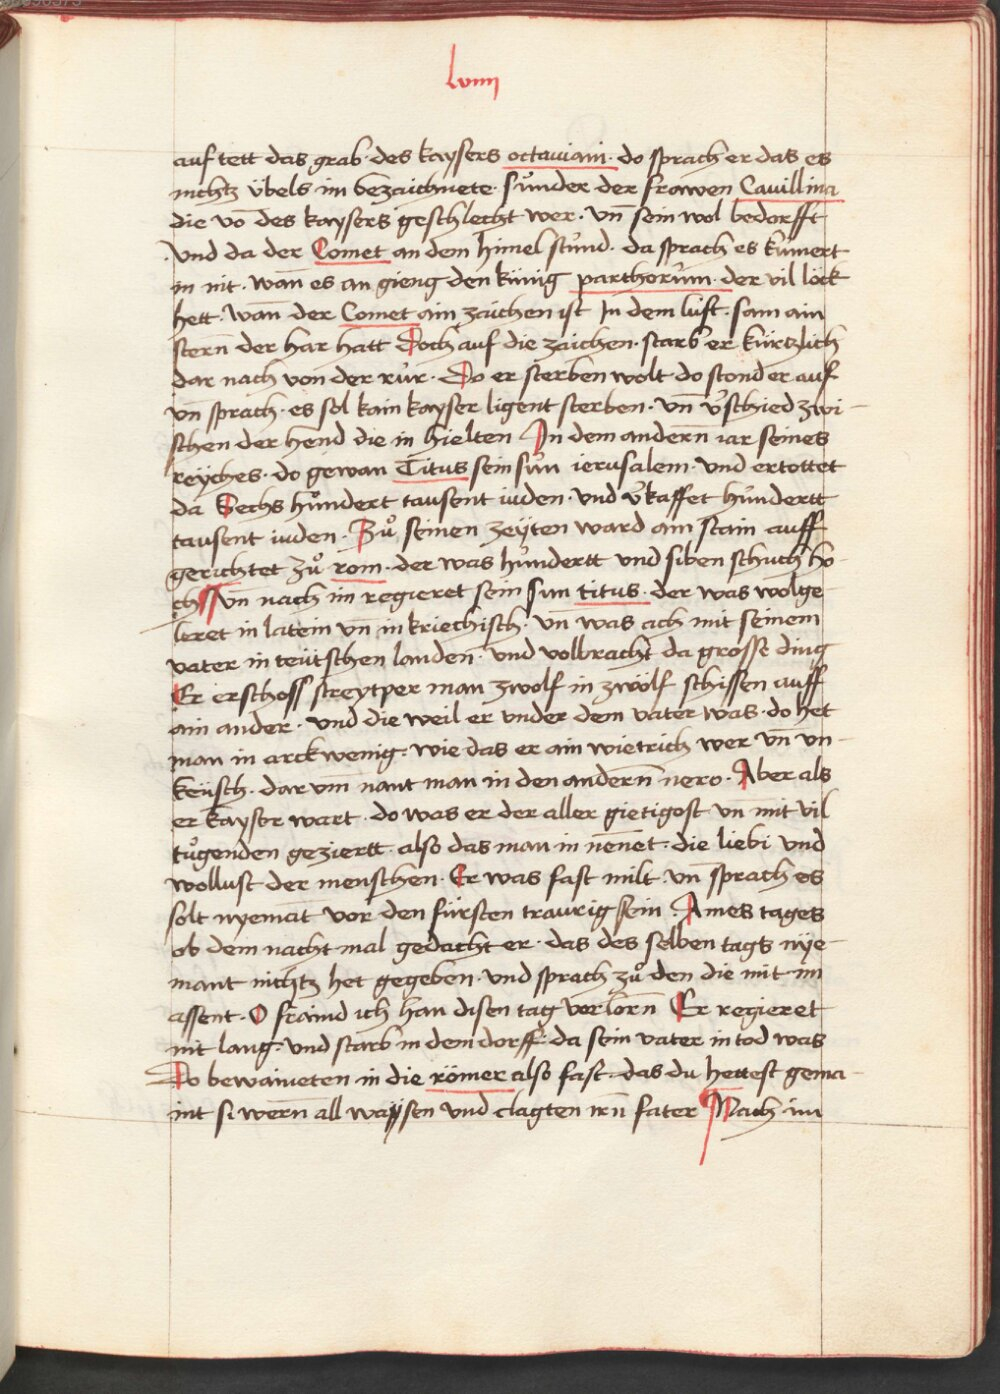 lviiij
auf tett das grab · des kaysers octauiani · do sprach er das es
nichtz übels im bezaichnete · sůnder der frawen Cauillina
die vō des kaysers geschlecht wer · vn̄ sein wol bedorfft
· Vnd da der Comet an dem himel stůnd · da sprach es kūmert
in nit · wan̄ es an gieng den künig parthorům · der vil löck
hett · wan̄ der Comet ain zaichen ist In dem luft · sam ain
stern̄ der har hatt Doch auf die zaichen · starb er kürtzlich
dar nach von der růr · Do er sterben wolt · do stond er auf
vn̄ sprach · es sol kain kayser ligent sterben · vn̄ v̓schied zwi-
schen der hend die in hielten In dem andern̄ iar seines
reyches · do gewan Titus sein sůn ierusalem · vnd ertottet
da Sechs hůndert tausent iuden · vnd v̓kaffet hůndertt
tausent iuden · Zů seinen zeÿten ward ain stain auff
gerichtet zů rom · der was hůndertt vnd siben schuch ho-
ch vn̄ nach im regieret sein sun titus · der was wolge-
leret in latein vn̄ in kriechisch · vn̄ was ach mit seinem
vater in teütschen landen · vnd volbracht da grosse ding
Er erschoss streytper man zwolf in zwölf schissen auff
ain ander · vnd die weil er vnder dem vater was · do het
man in arckwenig · wie das er ain wietrich wer vn̄ vn-
keüsch · dar vm̄ nant man in den andern̄ nero · Aber als
er kayser wart · do was er der aller gietigost vn̄ mit vil
tůgenden geziertt · also das man in nen̄et · die liebi vnd
wollust der menschen · Er was fast milt · vn̄ sprach es
solt nyemāt vor den fürsten traurig sein · Aines tages
ob dem nacht mal gedacht er · das des selben tags nÿe-
mant nichtz het gegeben · vnd sprach zů den die mit im
assent · O fraind ich han disen tag verlorn̄ Er regieret
nit lang · vnd starb in dem dorff · da sein vater in tod was
Do bewaineten in die römer also fast · das du hettest gema-
int si wern̄ all waÿsen vnd clagten irn̄ fater Nach im